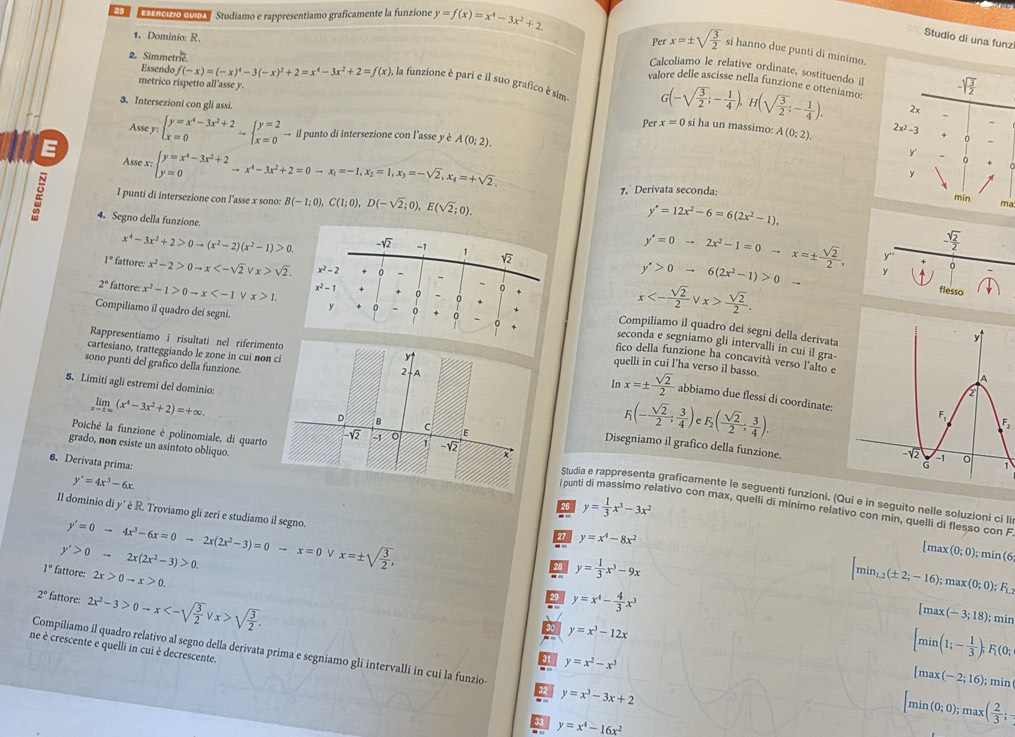 25 ESERCIZIO GUIDA Studiamo e rappresentiamo graficamente la funzione y = f(x) = x⁴ − 3x² + 2.
1. Dominio: R.
2. Simmetrie.
Essendo f(−x) = (−x)⁴ − 3(−x)² + 2 = x⁴ − 3x² + 2 = f(x), la funzione è pari e il suo grafico è sim-
metrico rispetto all'asse y.
3. Intersezioni con gli assi.
Asse y: { y = x⁴ − 3x² + 2 ; x = 0 → { y = 2 ; x = 0 → il punto di intersezione con l'asse y è A(0; 2).
Asse x: { y = x⁴ − 3x² + 2 ; y = 0 → x⁴ − 3x² + 2 = 0 → x₁ = −1, x₂ = 1, x₃ = −√2, x₄ = +√2.
I punti di intersezione con l'asse x sono: B(−1; 0), C(1; 0), D(−√2; 0), E(√2; 0).
4. Segno della funzione.
x⁴ − 3x² + 2 > 0 → (x² − 2)(x² − 1) > 0.
1° fattore: x² − 2 > 0 → x < −√2 ∨ x > √2.
2° fattore: x² − 1 > 0 → x < −1 ∨ x > 1.
Compiliamo il quadro dei segni.
−√2 −1 1 √2
x² − 2 + 0 − − − 0 +
x² − 1 + + 0 − 0 + +
y + 0 − 0 + 0 − 0 +
Rappresentiamo i risultati nel riferimento
cartesiano, tratteggiando le zone in cui non ci
sono punti del grafico della funzione.
y
2 A
D B C E
−√2 −1 O 1 −√2 x
5. Limiti agli estremi del dominio:
lim x→±∞ (x⁴ − 3x² + 2) = +∞.
Poiché la funzione è polinomiale, di quarto
grado, non esiste un asintoto obliquo.
6. Derivata prima:
y' = 4x³ − 6x.
Il dominio di y' è R. Troviamo gli zeri e studiamo il segno.
y' = 0 → 4x³ − 6x = 0 → 2x(2x² − 3) = 0 → x = 0 ∨ x = ±√(3/2),
y' > 0 → 2x(2x² − 3) > 0.
1° fattore: 2x > 0 → x > 0.
2° fattore: 2x² − 3 > 0 → x < −√(3/2) ∨ x > √(3/2).
Compiliamo il quadro relativo al segno della derivata prima e segniamo gli intervalli in cui la funzio-
ne è crescente e quelli in cui è decrescente.
E
ESERCIZI
Studio di una funzi
Per x = ±√(3/2) si hanno due punti di minimo.
Calcoliamo le relative ordinate, sostituendo il
valore delle ascisse nella funzione e otteniamo:
G(−√(3/2); −1/4), H(√(3/2); −1/4).
Per x = 0 si ha un massimo: A(0; 2).
−√(3/2)
2x − −
2x² − 3 + 0 −
y' − 0 + 0
y
min ma
7. Derivata seconda:
y" = 12x² − 6 = 6(2x² − 1),
y" = 0 → 2x² − 1 = 0 → x = ±√2/2,
y" > 0 → 6(2x² − 1) > 0 →
x < −√2/2 ∨ x > √2/2.
−√2/2
y" + 0 −
y
flesso
Compiliamo il quadro dei segni della derivata
seconda e segniamo gli intervalli in cui il gra-
fico della funzione ha concavità verso l'alto e
quelli in cui l'ha verso il basso.
In x = ±√2/2 abbiamo due flessi di coordinate:
F₁(−√2/2; 3/4) e F₂(√2/2; 3/4).
Disegniamo il grafico della funzione.
y
A
2
F₁ F₂
−√2 −1 O 1
G
Studia e rappresenta graficamente le seguenti funzioni. (Qui e in seguito nelle soluzioni ci li
i punti di massimo relativo con max, quelli di minimo relativo con min, quelli di flesso con F.
26 y = 1/3 x³ − 3x²
[max(0; 0); min(6;
27 y = x⁴ − 8x²
[min₁,₂(±2; −16); max(0; 0); F₁,₂
28 y = 1/3 x³ − 9x
[max(−3; 18); min
29 y = x⁴ − 4/3 x³
[min(1; −1/3); F₁(0;
30 y = x³ − 12x
[max(−2; 16); min(
31 y = x² − x³
[min(0; 0); max(2/3;
32 y = x³ − 3x + 2
33 y = x⁴ − 16x²